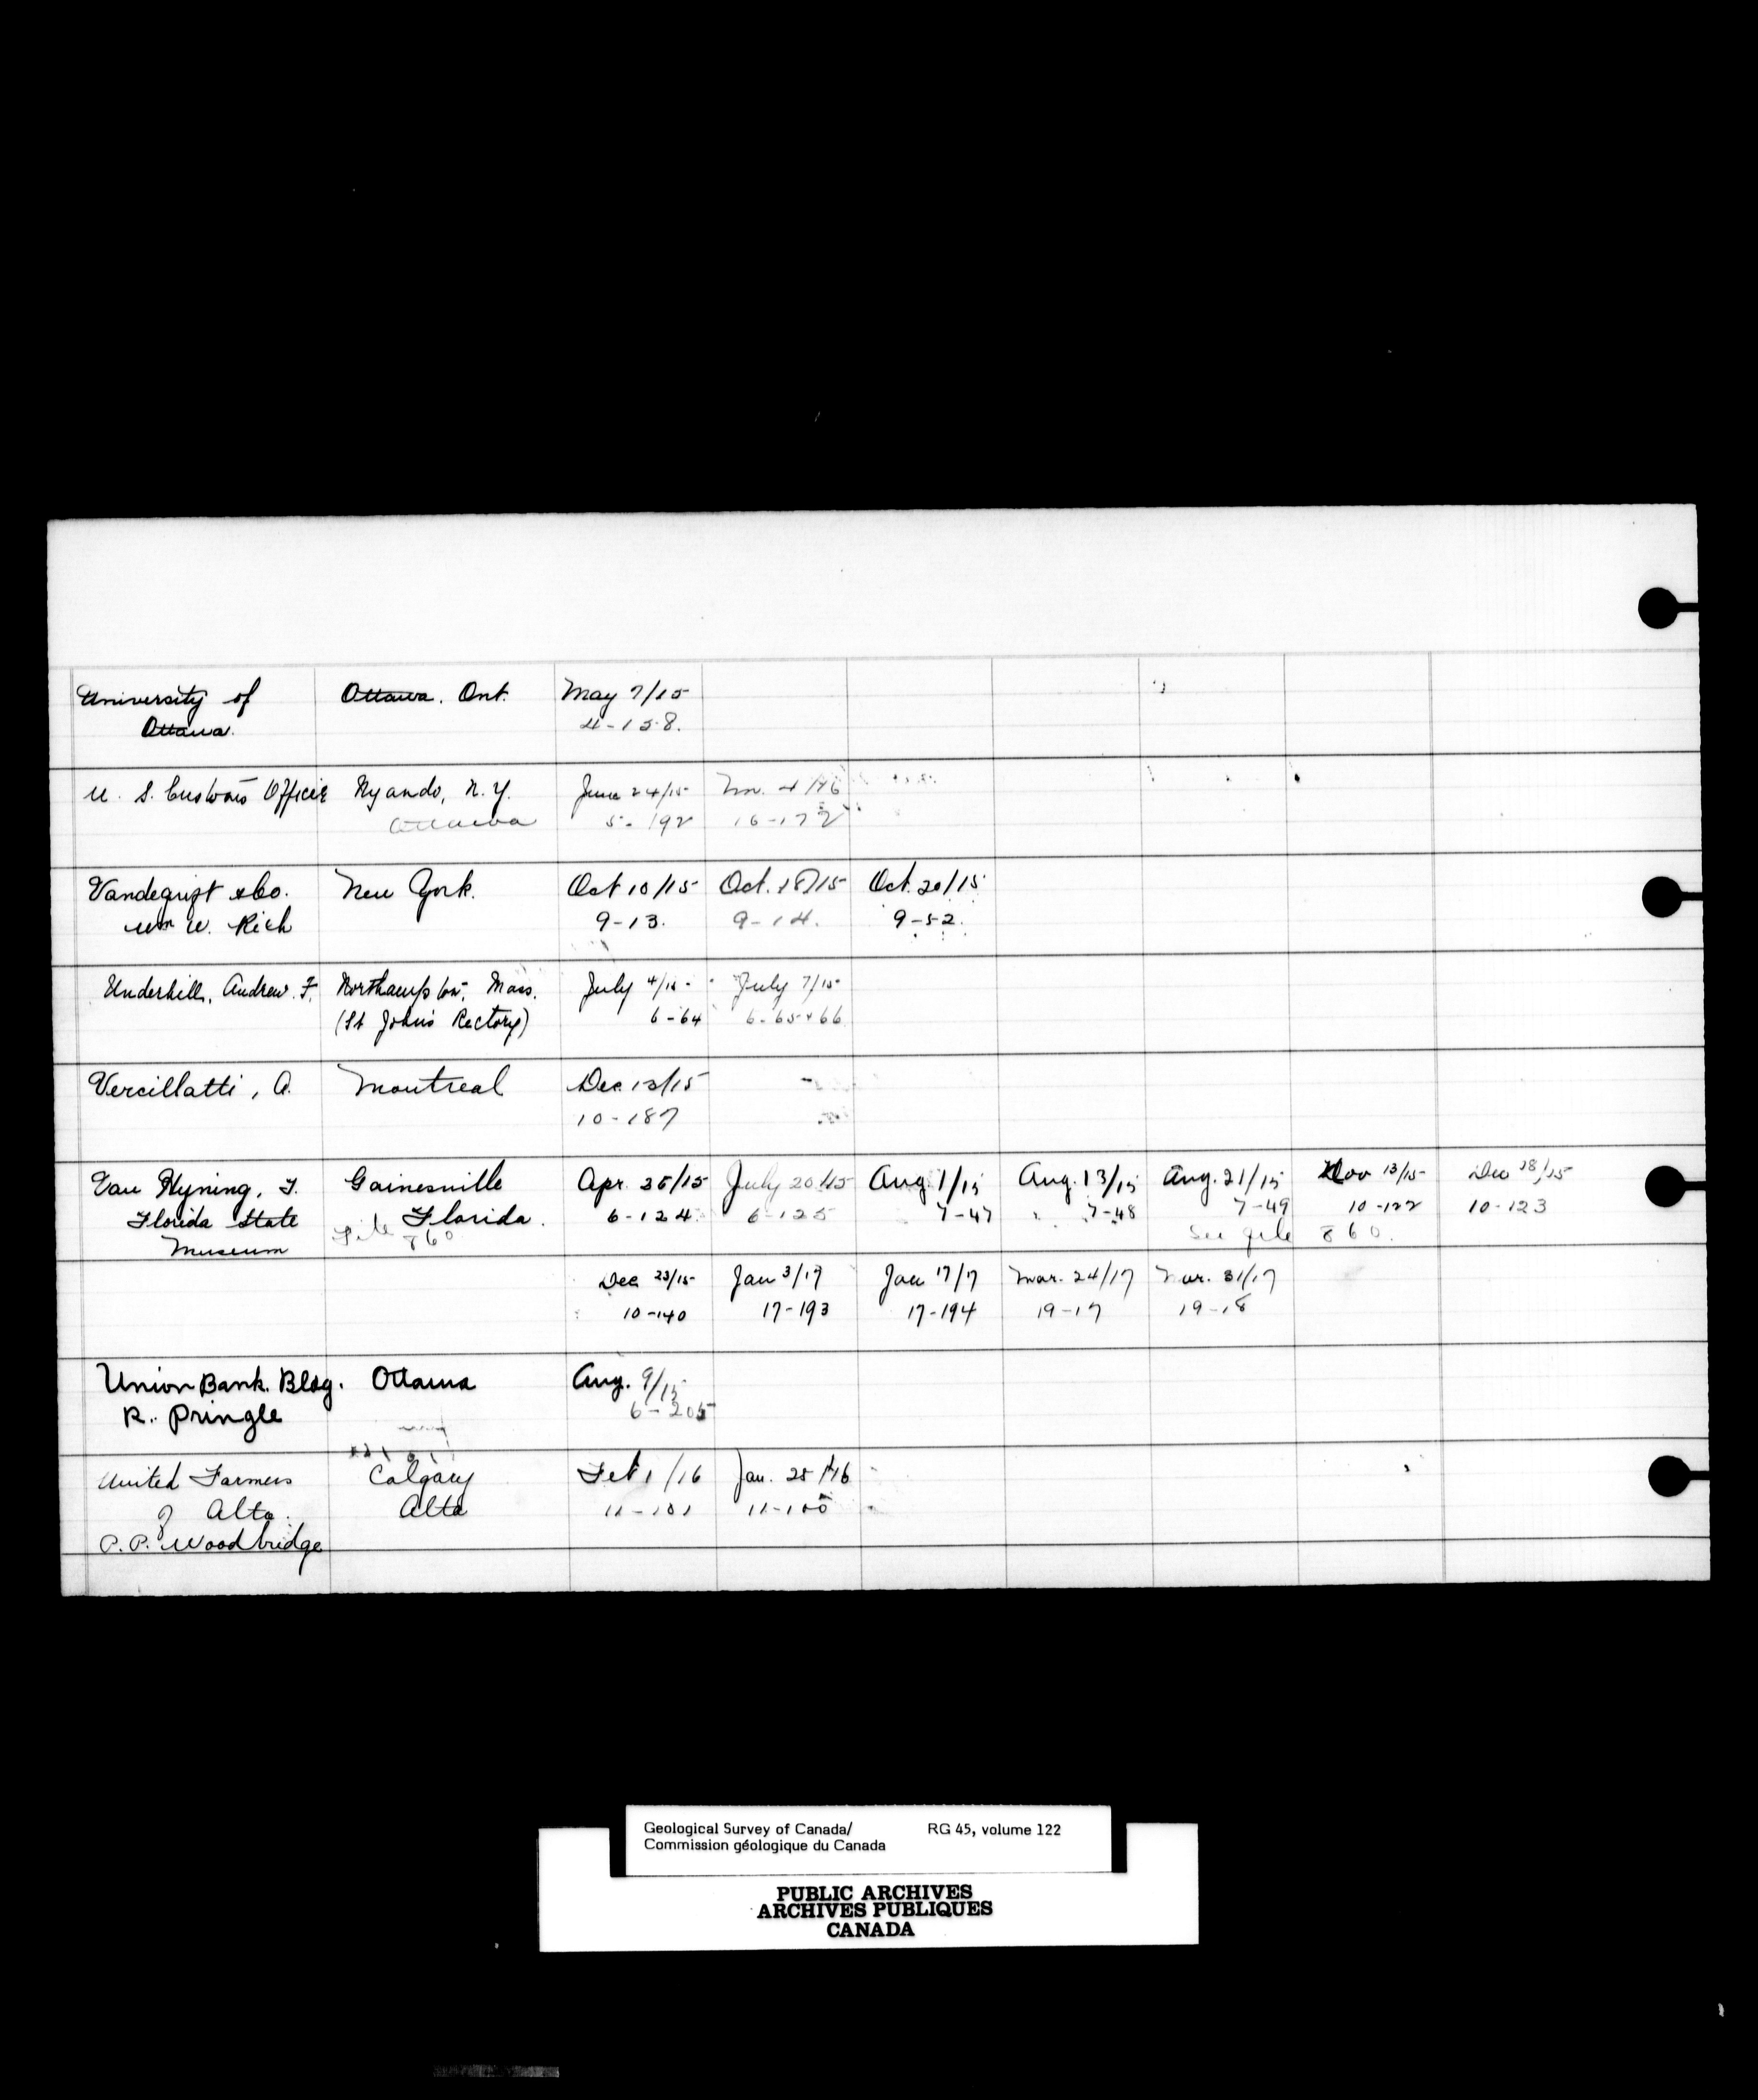 University of Ottawa. Ont. May 7/15
Ottawa. 4-158.
U. S. Customs Officer Nyando, N.Y. June 24/15 Nov. 4/16
Ottawa 5-192 16-172
Vandegrift & Co. New York. Oct 10/15 Oct. 18/15 Oct. 20/15
Wm W. Rich 9-13. 9-14. 9-52.
Underhill, Andrew F. Northampton, Mass. July 4/15 July 7/15
(St John's Rectory) 6-64 6-65+66
Vercillatti, A. Montreal Dec 13/15
10-187
Van Hyning, T. Gainesville Apr. 25/15 July 20/15 Aug 1/15 Aug. 13/15 Aug. 21/15 Nov 13/15 Dec 18/15
Florida State Florida. 6-124 6-125 7-47 7-48 7-49 10-122 10-123
Museum File 860 See file 860.
Dec 23/15 Jan 3/17 Jan 17/17 Mar. 24/17 Mar. 31/17
10-140 17-193 17-194 19-17 19-18
Union Bank. Bldg. Ottawa Aug. 9/15
R. Pringle 6-205
United Farmers Calgary Feb 1/16 Jan. 25/16
of Alta. Alta 11-101 11-100
P.P. Woodbridge
Geological Survey of Canada/ RG 45, volume 122
Commission géologique du Canada
PUBLIC ARCHIVES
ARCHIVES PUBLIQUES
CANADA